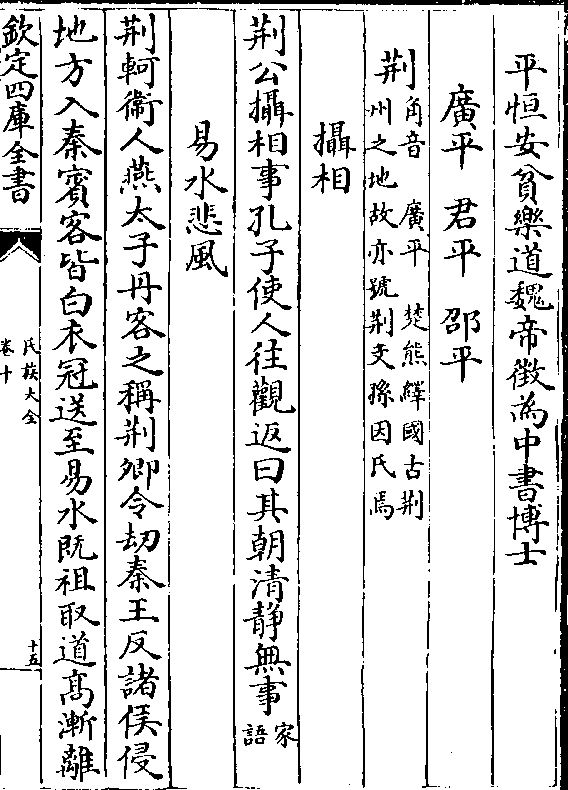 平恒安貧樂道魏帝徴為中書博士
廣平　君平　邵平
荆角音　廣平　楚熊繹國古荆
州之地故亦號荆支孫因氏焉
攝相
荆公攝相事孔子使人往觀返曰其朝清静無事家
語
易水悲風
荆軻衞人燕太子丹客之稱荆卿令刼秦王反諸侯侵
地方入秦賓客皆白衣冠送至易水既祖取道髙漸離
欽定四庫全書
氏族大全
卷十
十五